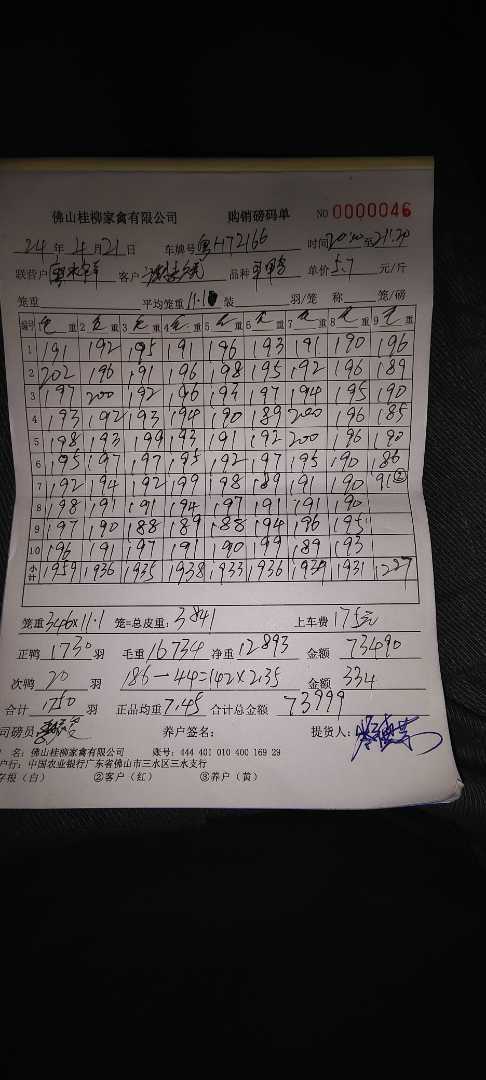 佛山桂柳家禽有限公司 购销磅码单 NO 0000046
24年4月21日 车牌号 粤H72166 时间20:30至21:20
联营户 客户 品种 单价5.7元/斤
笼重 平均笼重11.1 装 羽/笼 称 笼/磅
编号 1毛重 2毛重 3毛重 4毛重 5毛重 6毛重 7毛重 8毛重 9毛重
1 191 192 195 191 196 193 191 190 196
2 202 196 191 196 198 195 192 196 189
3 197 200 192 196 193 197 194 195 190
4 193 192 193 194 190 189 200 196 185
5 198 193 199 193 191 192 200 196 190
6 195 197 197 195 192 197 195 190 186
7 192 194 192 199 198 189 191 190 91②
8 198 191 191 194 197 191 191 190
9 197 190 188 189 188 194 196 195
10 196 191 197 191 190 199 189 193
小计 1959 1936 1935 1938 1933 1936 1939 1931 1227
笼重346×11.1 笼=总皮重:3841 上车费175元
正鸭1730羽 毛重16734 净重12893 金额73490
次鸭20羽 186-44=142×2.35 金额334
合计1750羽 正品均重7.45 合计总金额73999
司磅员: 养户签名: 提货人:
名:佛山桂柳家禽有限公司 账号:444 401 010 400 169 29
户行:中国农业银行广东省佛山市三水区三水支行
存根(白) ②客户(红) ③养户(黄)